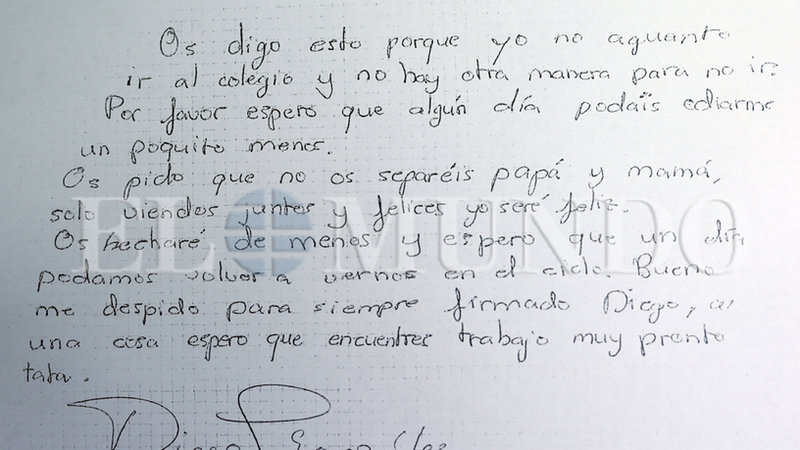 Os digo esto porque yo no aguanto
ir al colegio y no hay otra manera para no ir.
Por favor espero que algún día podáis odiarme
un poquito menos.
Os pido que no os separéis papá y mamá,
solo viendos juntos y felices yo seré feliz.
Os hecharé de menos y espero que un día
podamos volver a vernos en el cielo. Bueno
me despido para siempre firmado Diego, a
una cosa espero que encuentres trabajo muy pronto
tata.
EL MUNDO
Diego